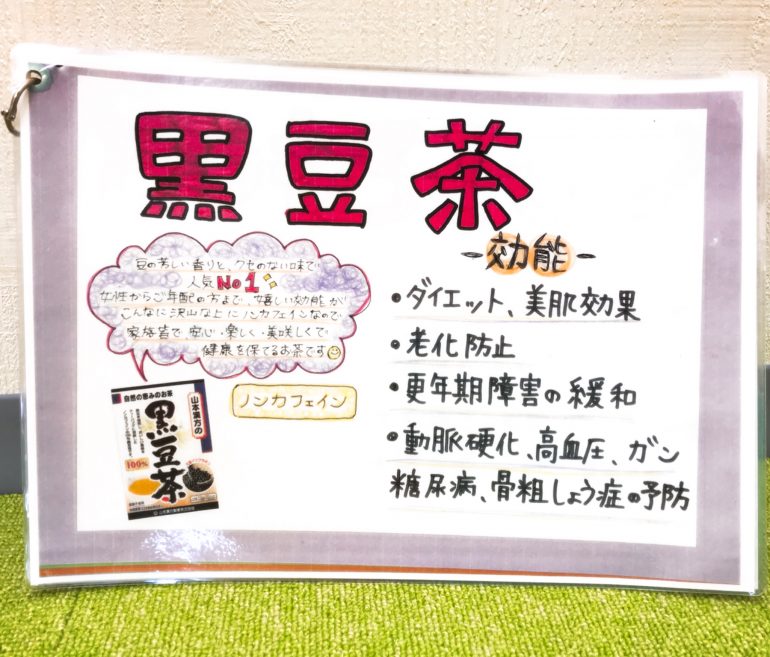 黒豆茶
豆の芳しい香りと、クセのない味で
人気No1
女性からご年配の方まで、嬉しい効能が
こんなに沢山な上にノンカフェインなので
家族皆で安心・楽しく・美味しくで
健康を保てるお茶です
ノンカフェイン
自然の恵みのお茶
山本漢方の
黒豆茶
100%
-効能-
•ダイエット、美肌効果
•老化防止
•更年期障害の緩和
•動脈硬化、高血圧、ガン
糖尿病、骨粗しょう症の予防